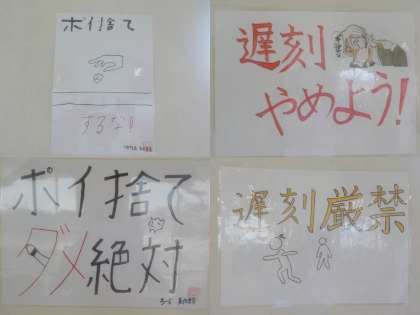 ポイ捨て
するな!
遅刻
やめよう!
ポイ捨て
ダメ絶対
遅刻厳禁